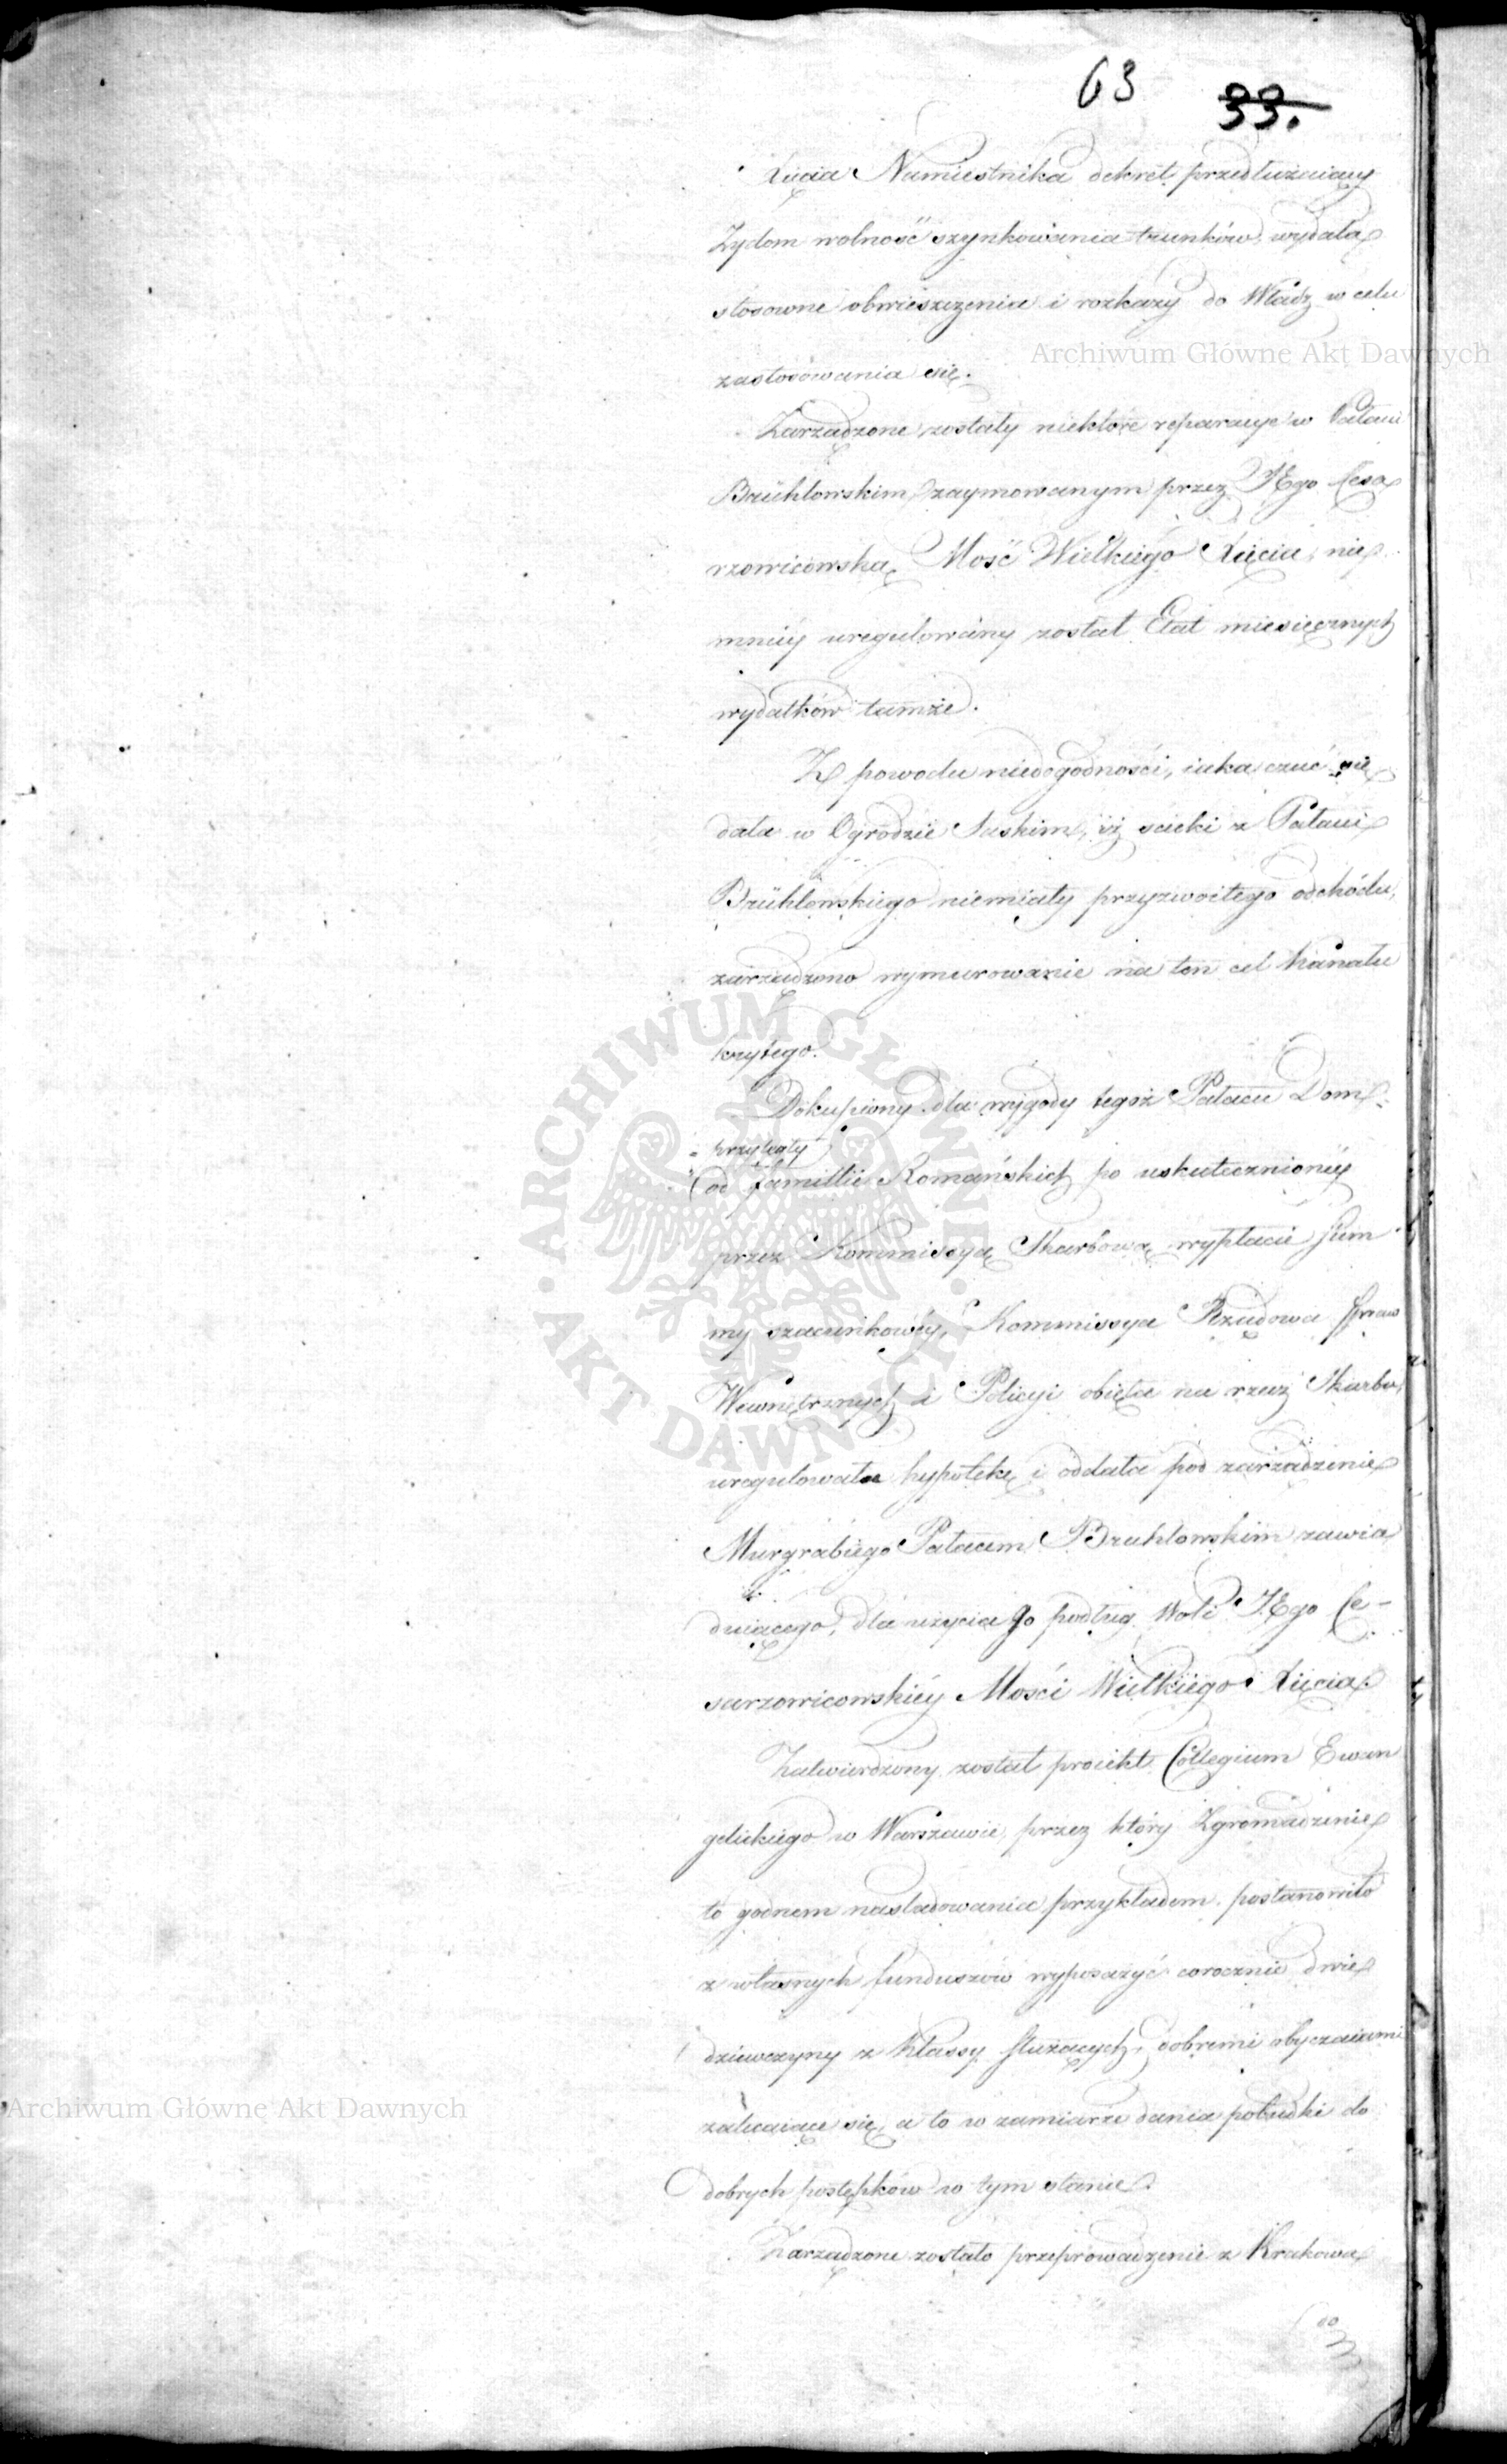 63 33.
Xięcia Namiestnika dekret przedłużaiący
Żydom wolność szynkowania trunków, wydała
stosowne obwieszczenia i rozkazy do Władz w celu
zastosowania się.
Archiwum Główne Akt Dawnych
Zarządzone zostały niektóre reparacye w Pałacu
Brühlowskim zaymowanym przez JEgo Cesa
rzowicowską Mość Wielkiego Xięcia, nie
mniéy uregulowany został Etat miesięcznych
wydatków tamże.
Z powodu niedogodności, iaka czuć się
dała w Ogrodzie Saskim, iż ścieki z Pałacu
Brühlowskiego niemiały przyzwoitego odchodu,
zarządzono wymurowanie na ten cel kanału
krytego.
Dokupiony dla wygody tegoż Pałacu Dom
przyległy
od familii Romańskich po uskutecznionéy
przez Kommissyą Skarbową wypłacie sum
my szacunkowéy, Kommissya Rządowa Spraw
Wewnętrznych i Policyi obięła na rzecz Skarbu,
uregulowała hypotekę i oddała pod zarządzenie
Murgrabiego Pałacem Bruhlowskim zawia
duiącego, dla użycia go podług Woli JEgo Ce-
sarzowicowskiéy Mości Wielkiego Xięcia.
Zatwierdzony został proiekt Collegium Ewan
gelickiego w Warszawie, przez który Zgromadzenie
to godnem nasladowania przykładem postanowiło
z własnych funduszów wyposażyć corocznie dwie
dziewczyny z klassy służących, dobremi obyczaiami
zalecaiące się, a to w zamiarze dania pobudki do
dobrych postępków w tym stanie.
Archiwum Główne Akt Dawnych
Zarządzone zostało przeprowadzenie z Krakowa
do
ARCHIWUM GŁÓWNE AKT DAWNYCH